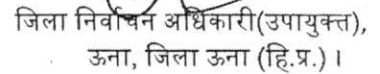 जिला निर्वाचन अधिकारी(उपायुक्त),
ऊना, जिला ऊना (हि.प्र.) ।